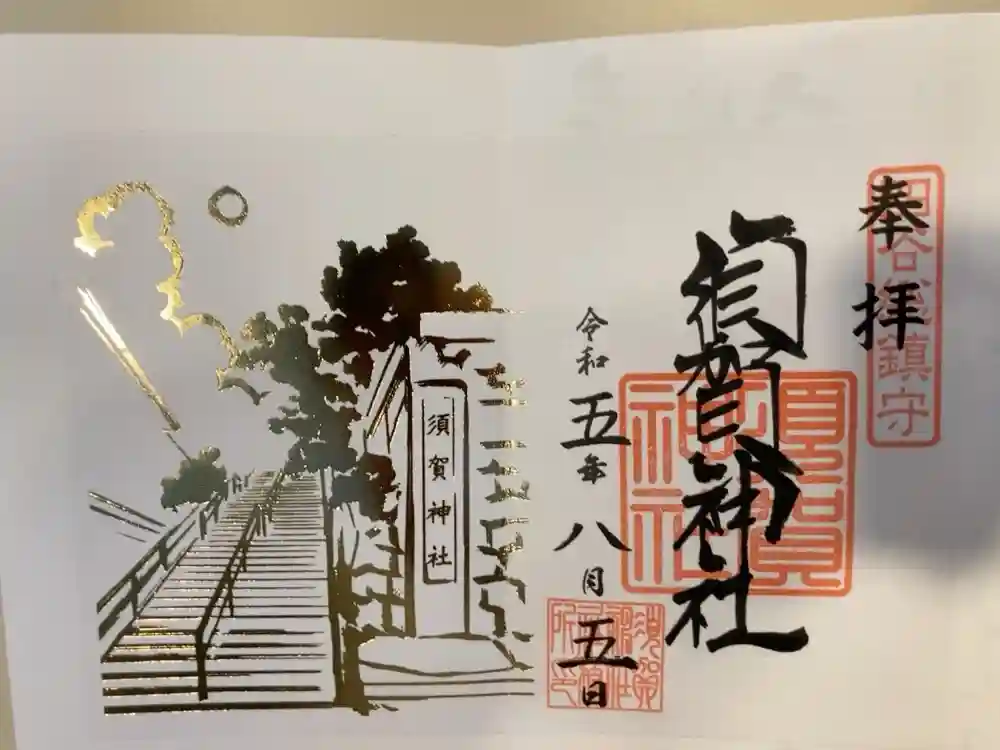 奉拝
四谷總鎮守
須賀神社
須賀神社
令和五年八月五日
須賀神社